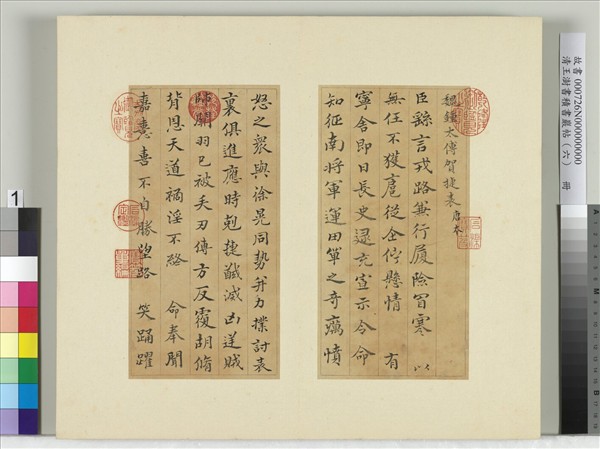 故書 000726N000000000
清王澍書積書巖帖（六） 冊
魏鍾太傅賀捷表 唐本
臣繇言戎路兼行履險冒寒 以
無任不獲扈從企佇懸情 有
寧舍即日長史逯充宣示令命
知征南將軍運田單之奇厲憤
怒之衆與徐晃同勢并力撲討表
裏俱進應時剋捷馘滅凶逆賊
帥關羽已被矢刃傅方反覆胡脩
背恩天道禍淫不終 命奉聞
嘉憙喜不自勝望路 笑踊躍
1